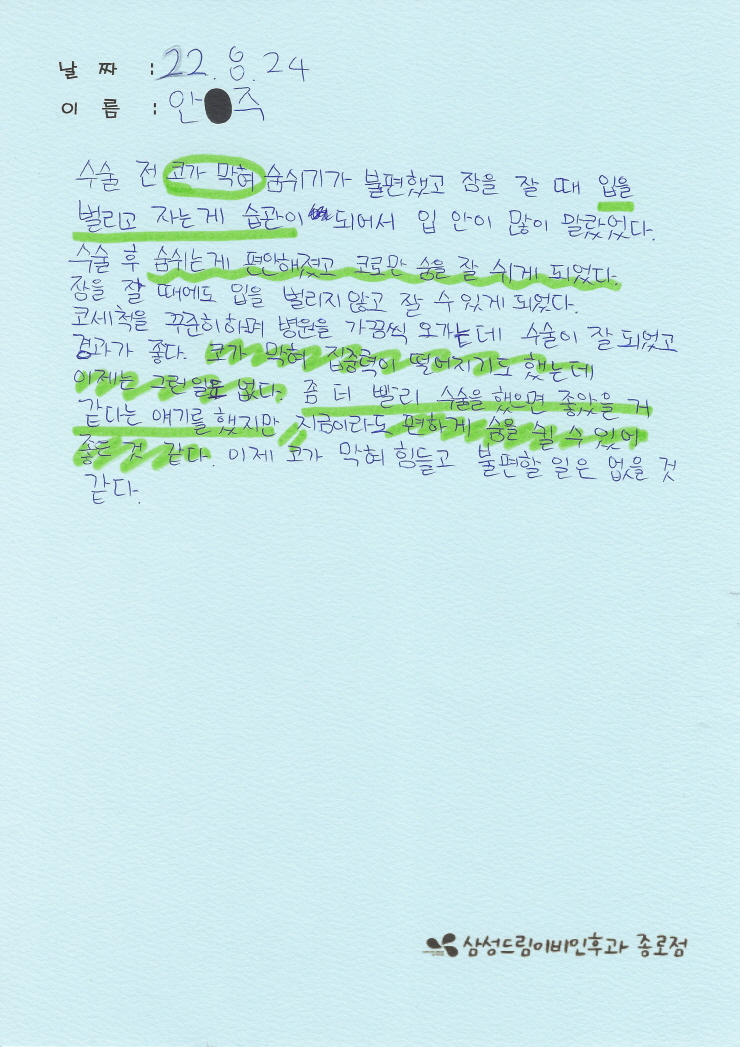 날 짜 : 22. 8. 24
이 름 : 안 주
수술 전 코가 막혀 숨쉬기가 불편했고 잠을 잘 때 입을
벌리고 자는게 습관이 되어서 입 안이 많이 말랐었다.
수술 후 숨쉬는게 편안해졌고 코로만 숨을 잘 쉬게 되었다.
잠을 잘 때에도 입을 벌리지않고 잘 수 있게 되었다.
코세척을 꾸준히하며 병원을 가끔씩 오가는데 수술이 잘 되었고
경과가 좋다. 코가 막혀 집중력이 떨어지기도 했는데
이제는 그런일도 없다. 좀 더 빨리 수술을 했으면 좋았을 거
같다는 얘기를 했지만 지금이라도 편하게 숨을 쉴 수 있어
좋은 것 같다. 이제 코가 막혀 힘들고 불편할 일은 없을 것
같다.
삼성드림이비인후과 종로점